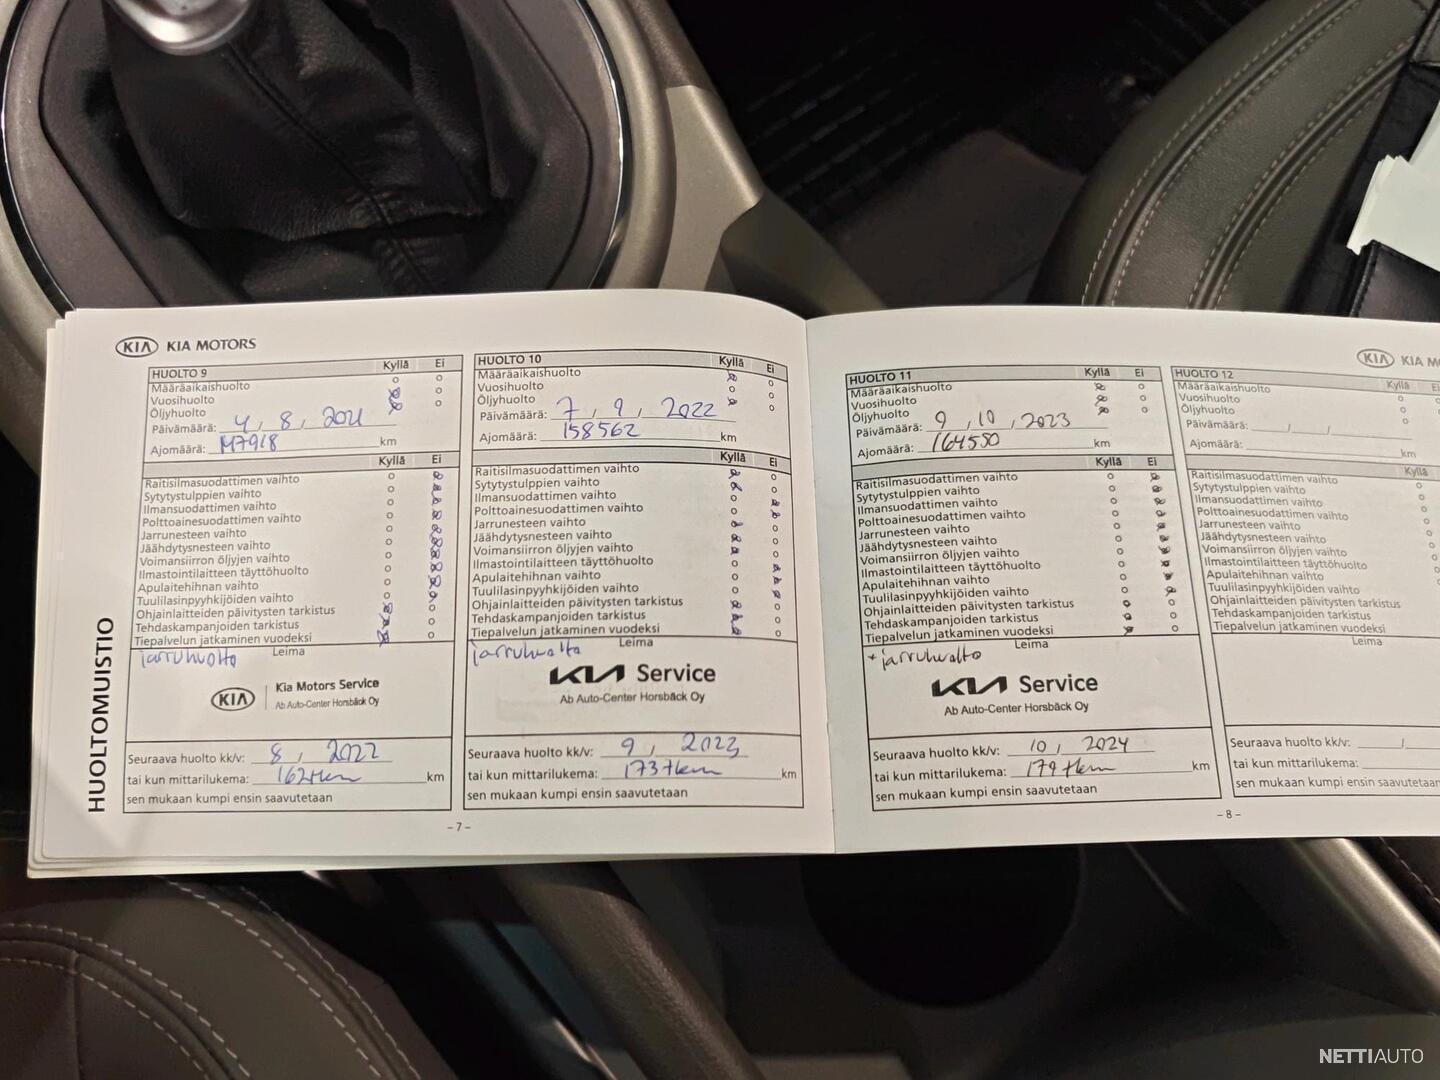 KIA KIA MOTORS
HUOLTOMUISTIO
HUOLTO 9 Kyllä Ei
Määräaikaishuolto
Vuosihuolto
Öljyhuolto
Päivämäärä: 4, 8, 2021
Ajomäärä: 147918 km
Kyllä Ei
Raitisilmasuodattimen vaihto
Sytytystulppien vaihto
Ilmansuodattimen vaihto
Polttoainesuodattimen vaihto
Jarrunesteen vaihto
Jäähdytysnesteen vaihto
Voimansiirron öljyjen vaihto
Ilmastointilaitteen täyttöhuolto
Apulaitehihnan vaihto
Tuulilasinpyyhkijöiden vaihto
Ohjainlaitteiden päivitysten tarkistus
Tehdaskampanjoiden tarkistus
Tiepalvelun jatkaminen vuodeksi
jarruhuolto Leima
KIA Kia Motors Service
Ab Auto-Center Horsbäck Oy
Seuraava huolto kk/v: 8, 2022
tai kun mittarilukema: 162tkm km
sen mukaan kumpi ensin saavutetaan
HUOLTO 10 Kyllä Ei
Määräaikaishuolto
Vuosihuolto
Öljyhuolto
Päivämäärä: 7, 9, 2022
Ajomäärä: 158562 km
Kyllä Ei
Raitisilmasuodattimen vaihto
Sytytystulppien vaihto
Ilmansuodattimen vaihto
Polttoainesuodattimen vaihto
Jarrunesteen vaihto
Jäähdytysnesteen vaihto
Voimansiirron öljyjen vaihto
Ilmastointilaitteen täyttöhuolto
Apulaitehihnan vaihto
Tuulilasinpyyhkijöiden vaihto
Ohjainlaitteiden päivitysten tarkistus
Tehdaskampanjoiden tarkistus
Tiepalvelun jatkaminen vuodeksi
jarruhuolto Leima
KIA Service
Ab Auto-Center Horsbäck Oy
Seuraava huolto kk/v: 9, 2023
tai kun mittarilukema: 173tkm km
sen mukaan kumpi ensin saavutetaan
– 7 –
KIA KIA M
HUOLTO 11 Kyllä Ei
Määräaikaishuolto
Vuosihuolto
Öljyhuolto
Päivämäärä: 9, 10, 2023
Ajomäärä: 164550 km
Kyllä Ei
Raitisilmasuodattimen vaihto
Sytytystulppien vaihto
Ilmansuodattimen vaihto
Polttoainesuodattimen vaihto
Jarrunesteen vaihto
Jäähdytysnesteen vaihto
Voimansiirron öljyjen vaihto
Ilmastointilaitteen täyttöhuolto
Apulaitehihnan vaihto
Tuulilasinpyyhkijöiden vaihto
Ohjainlaitteiden päivitysten tarkistus
Tehdaskampanjoiden tarkistus
Tiepalvelun jatkaminen vuodeksi
+ jarruhuolto Leima
KIA Service
Ab Auto-Center Horsbäck Oy
Seuraava huolto kk/v: 10, 2024
tai kun mittarilukema: 179tkm km
sen mukaan kumpi ensin saavutetaan
HUOLTO 12 Kyllä Ei
Määräaikaishuolto
Vuosihuolto
Öljyhuolto
Päivämäärä: / /
Ajomäärä: km
Kyllä
Raitisilmasuodattimen vaihto
Sytytystulppien vaihto
Ilmansuodattimen vaihto
Polttoainesuodattimen vaihto
Jarrunesteen vaihto
Jäähdytysnesteen vaihto
Voimansiirron öljyjen vaihto
Ilmastointilaitteen täyttöhuolto
Apulaitehihnan vaihto
Tuulilasinpyyhkijöiden vaihto
Ohjainlaitteiden päivitysten tarkistus
Tehdaskampanjoiden tarkistus
Tiepalvelun jatkaminen vuodeksi
Leima
Seuraava huolto kk/v: /
tai kun mittarilukema:
sen mukaan kumpi ensin saavutetaan
– 8 –
NETTIAUTO